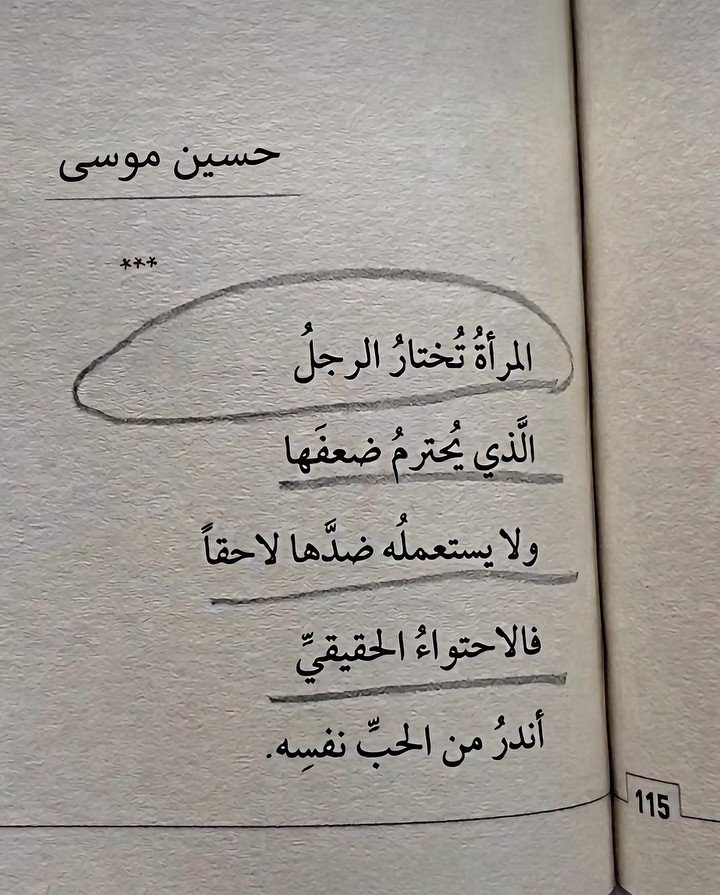 حسين موسى
***
المرأةُ تُختارُ الرجلُ
الَّذي يُحترمُ ضعفَها
ولا يستعملُه ضدَّها لاحقاً
فالاحتواءُ الحقيقيِّ
أندرُ من الحبِّ نفسِه.
115